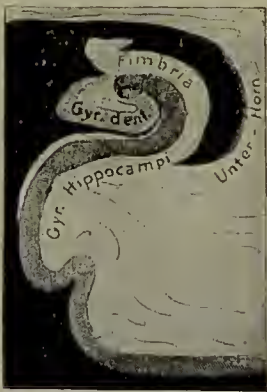 Fimbria
Gyr. dent.
Gyr. Hippocampi
Unter-Horn